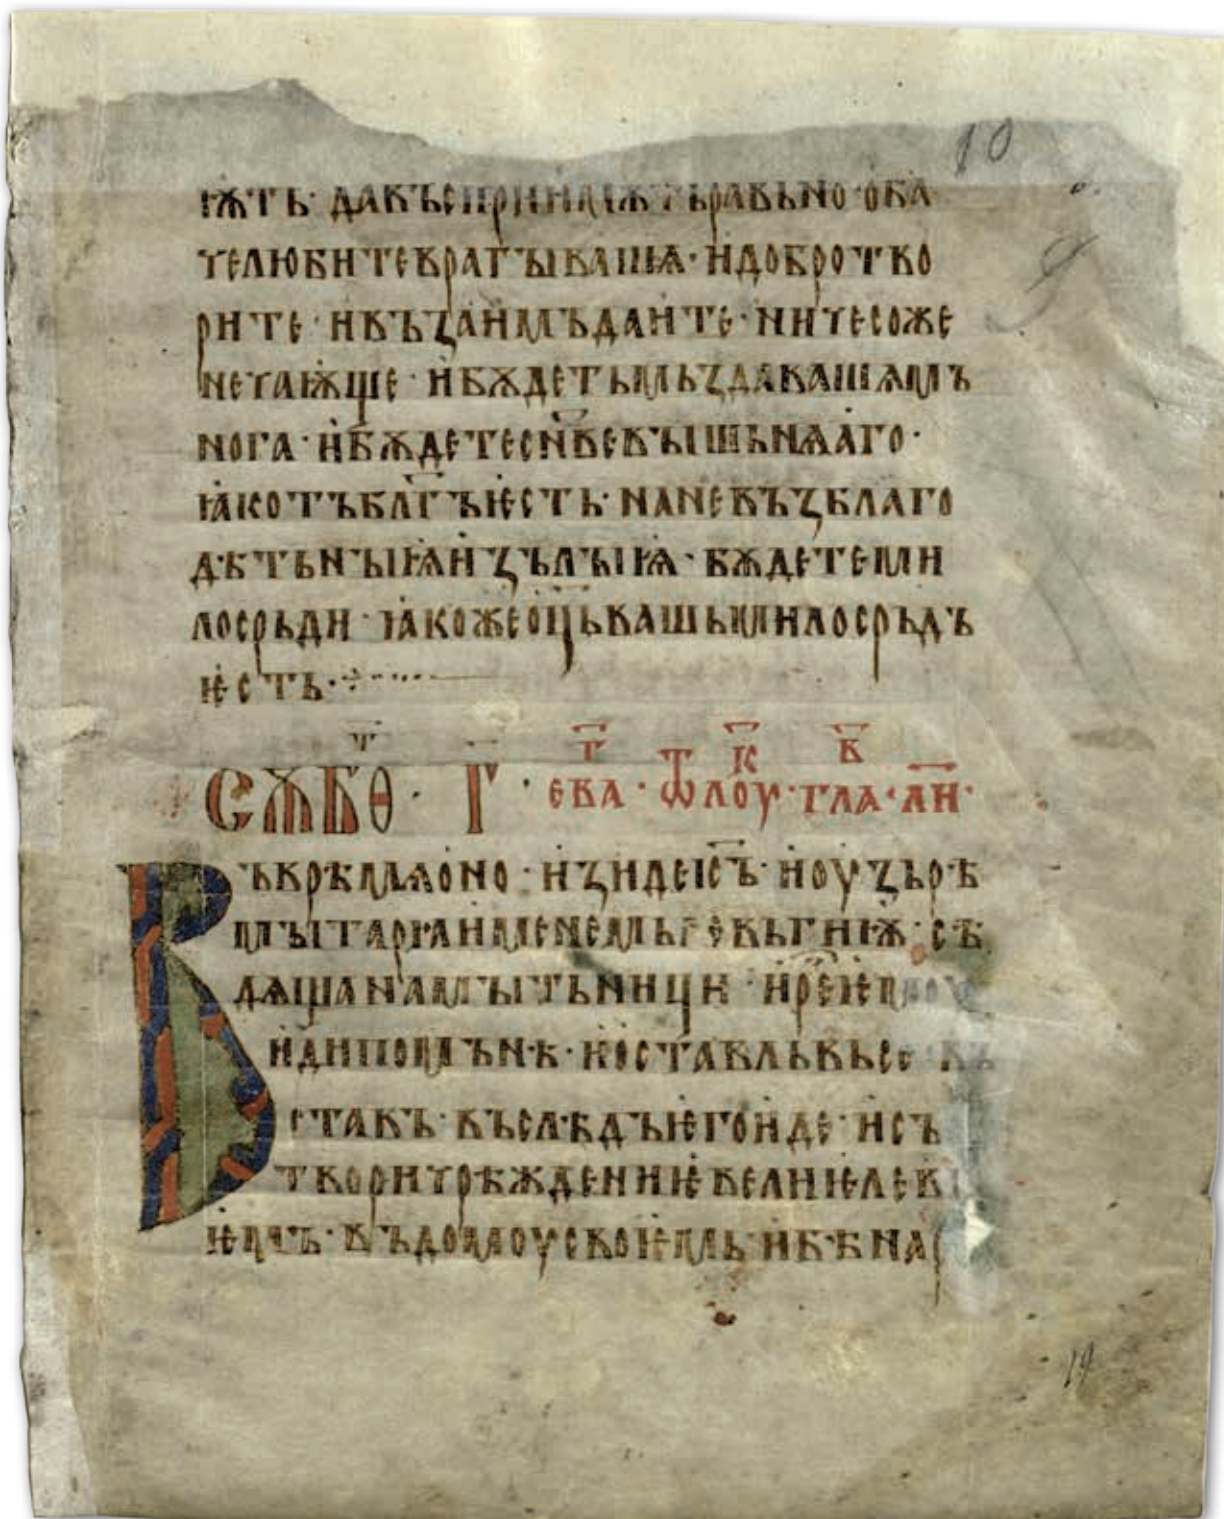 10
ѭть· да въспримѫть равьно· оба
че любите врагы вашѧ· и добро тво
рите· и въ ꙁаимъ даите· ничесоже
не чаѭще· и бѫдеть мьꙁда ваша м
нога· и бѫдете сн҃ве вышьнѧаго·
ꙗко тъ бл҃гъ ѥсть· на невъꙁблаго
дѣтьныѩ и ꙁълыѩ· бѫдете ми
лосрьди· ꙗкоже оц҃ь вашь милосрьдъ
ѥсть·
сѫбѳ· г҃· ева· ѿ лоу· гла· ли·
Въ врѣмѧ оно· иꙁиде ис҃ъ· и оуꙁьрѣ
мытарꙗ именемь левьгиѭ· сѣ
дѧща на мытьници· и ре҃ ѥмоу
иди по мънѣ· и оставль вьсе въ
ставъ· въ слѣдъ ѥго иде· и съ
твори чрѣждениѥ велиѥ леви
ѥмъ· въ домоу своѥмь· и бѣ нар
14